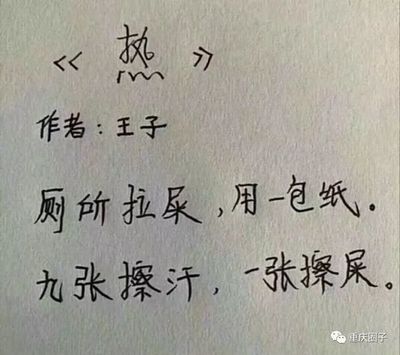 《热》
作者：王子
厕所拉屎，用一包纸。
九张擦汗，一张擦屎。
重庆圈子